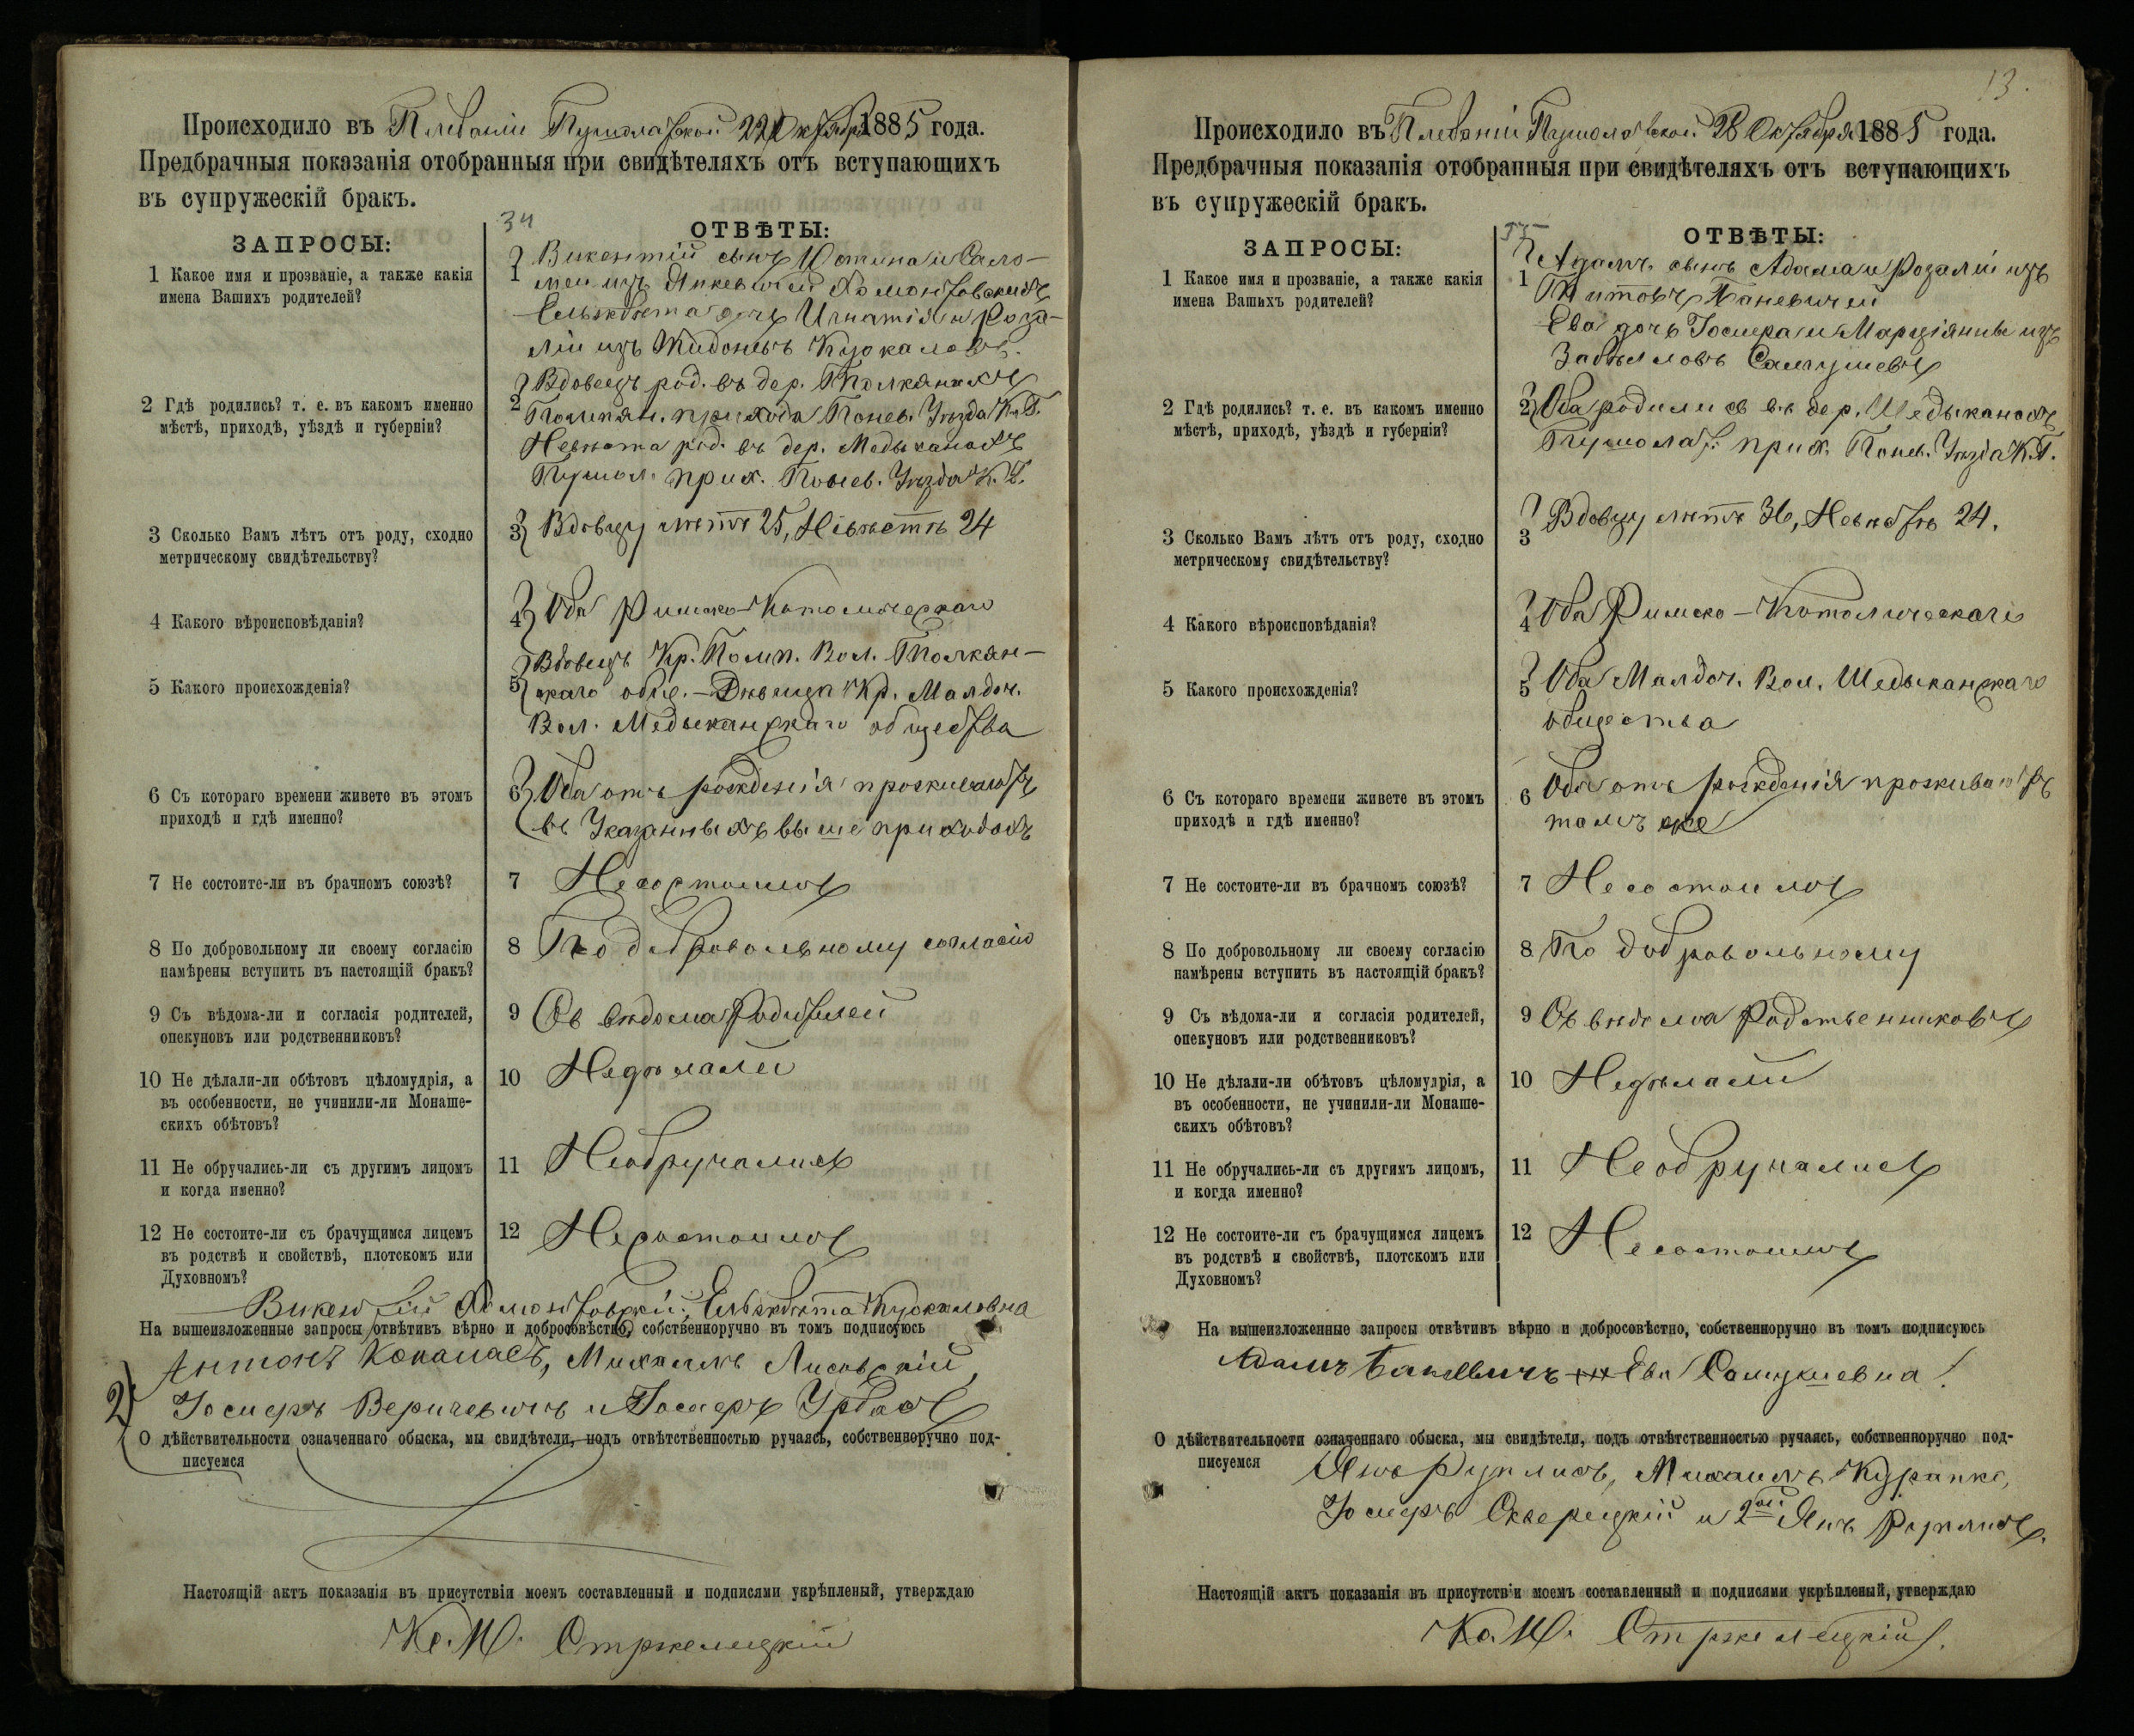 Происходило въ Плебаніи Пушолатской 22 Октября 1885 года.
Предбрачныя показанія отобранныя при свидѣтеляхъ отъ вступающихъ
въ супружескій бракъ.
34
ЗАПРОСЫ:
ОТВѢТЫ:
1 Какое имя и прозваніе, а также какія
имена Вашихъ родителей?
1 Викентій сынъ Юстина и Сало-
меи изъ Хомонтовскихъ
Ельжбета дочь Игнатія и Роза-
ліи изъ
2 Гдѣ родились? т. е. въ какомъ именно
мѣстѣ, приходѣ, уѣздѣ и губерніи?
2 Вдовецъ род. въ дер.
прихода Понев. Уѣзда К. Г.
Невѣста род. въ дер. Медыканахъ
Пушол. прих. Понев. Уѣзда К. Г.
3 Сколько Вамъ лѣтъ отъ роду, сходно
метрическому свидѣтельству?
3 Вдовцу лѣтъ 25, Невѣстѣ 24
4 Какого вѣроисповѣданія?
4 Оба Римско-Католическаго
5 Какого происхожденія?
5 Вдовецъ Кр. Помп. Вол.
скаго общ. – Дѣвица Кр. Малдоч.
Вол. Медыканскаго общества
6 Съ котораго времени живете въ этомъ
приходѣ и гдѣ именно?
6 Оба отъ рожденія проживаютъ
въ Указанныхъ выше приходахъ
7 Не состоите-ли въ брачномъ союзѣ?
7 Несостоимъ
8 По добровольному ли своему согласію
намѣрены вступить въ настоящій бракъ?
8 По добровольному согласію
9 Съ вѣдома-ли и согласія родителей,
опекуновъ или родственниковъ?
9 Съ вѣдома Родителей
10 Не дѣлали-ли обѣтовъ цѣломудрія, а
въ особенности, не учинили-ли Монаше-
скихъ обѣтовъ?
10 Недѣлали
11 Не обручались-ли съ другимъ лицомъ
и когда именно?
11 Необручались
12 Не состоите-ли съ брачущимся лицемъ
въ родствѣ и свойствѣ, плотскомъ или
Духовномъ?
12 Несостоимъ
Викентій Хомонтовскій, Ельжбета
На вышеизложенные запросы отвѣтивъ вѣрно и добросовѣстно, собственноручно въ томъ подписуюсь
Антонъ Михаилъ Лисовскій,
2) Іосифъ и Іосифъ Урбасъ
О дѣйствительности означеннаго обыска, мы свидѣтели, подъ отвѣтственностью ручаясь, собственноручно под-
писуемся
Настоящій актъ показанія въ присутствіи моемъ составленный и подписями укрѣпленый, утверждаю
Стржелецкій
13.
Происходило въ Плебаніи Пушолатской 28 Октября 1885 года.
Предбрачныя показанія отобранныя при свидѣтеляхъ отъ вступающихъ
въ супружескій бракъ.
35
ЗАПРОСЫ:
ОТВѢТЫ:
1 Какое имя и прозваніе, а также какія
имена Вашихъ родителей?
1 Адамъ сынъ Адама и Розаліи изъ
Ева дочь Іосифа и Марціянны изъ
2 Гдѣ родились? т. е. въ какомъ именно
мѣстѣ, приходѣ, уѣздѣ и губерніи?
2 Оба родились въ дер.
Пушолат. прих. Понев. Уѣзда К. Г.
3 Сколько Вамъ лѣтъ отъ роду, сходно
метрическому свидѣтельству?
3 Вдовцу лѣтъ 36, Невѣстѣ 24.
4 Какого вѣроисповѣданія?
4 Оба Римско-Католическаго
5 Какого происхожденія?
5 Оба Малдоч. Вол.
общества
6 Съ котораго времени живете въ этомъ
приходѣ и гдѣ именно?
6 Оба отъ рожденія проживаютъ
тамъ же
7 Не состоите-ли въ брачномъ союзѣ?
7 Несостоимъ
8 По добровольному ли своему согласію
намѣрены вступить въ настоящій бракъ?
8 По добровольному
9 Съ вѣдома-ли и согласія родителей,
опекуновъ или родственниковъ?
9 Съ вѣдома Родственниковъ
10 Не дѣлали-ли обѣтовъ цѣломудрія, а
въ особенности, не учинили-ли Монаше-
скихъ обѣтовъ?
10 Недѣлали
11 Не обручались-ли съ другимъ лицомъ,
и когда именно?
11 Необручались
12 Не состоите-ли съ брачущимся лицемъ
въ родствѣ и свойствѣ, плотскомъ или
Духовномъ?
12 Несостоимъ
На вышеизложенные запросы отвѣтивъ вѣрно и добросовѣстно, собственноручно въ томъ подписуюсь
Адамъ Баневичъ Ева
О дѣйствительности означеннаго обыска, мы свидѣтели, подъ отвѣтственностью ручаясь, собственноручно под-
писуемся
Янъ Михаилъ
Іосифъ Скверецкій и 2ой Янъ
Настоящій актъ показанія въ присутствіи моемъ составленный и подписями укрѣпленый, утверждаю
Стржелецкій.